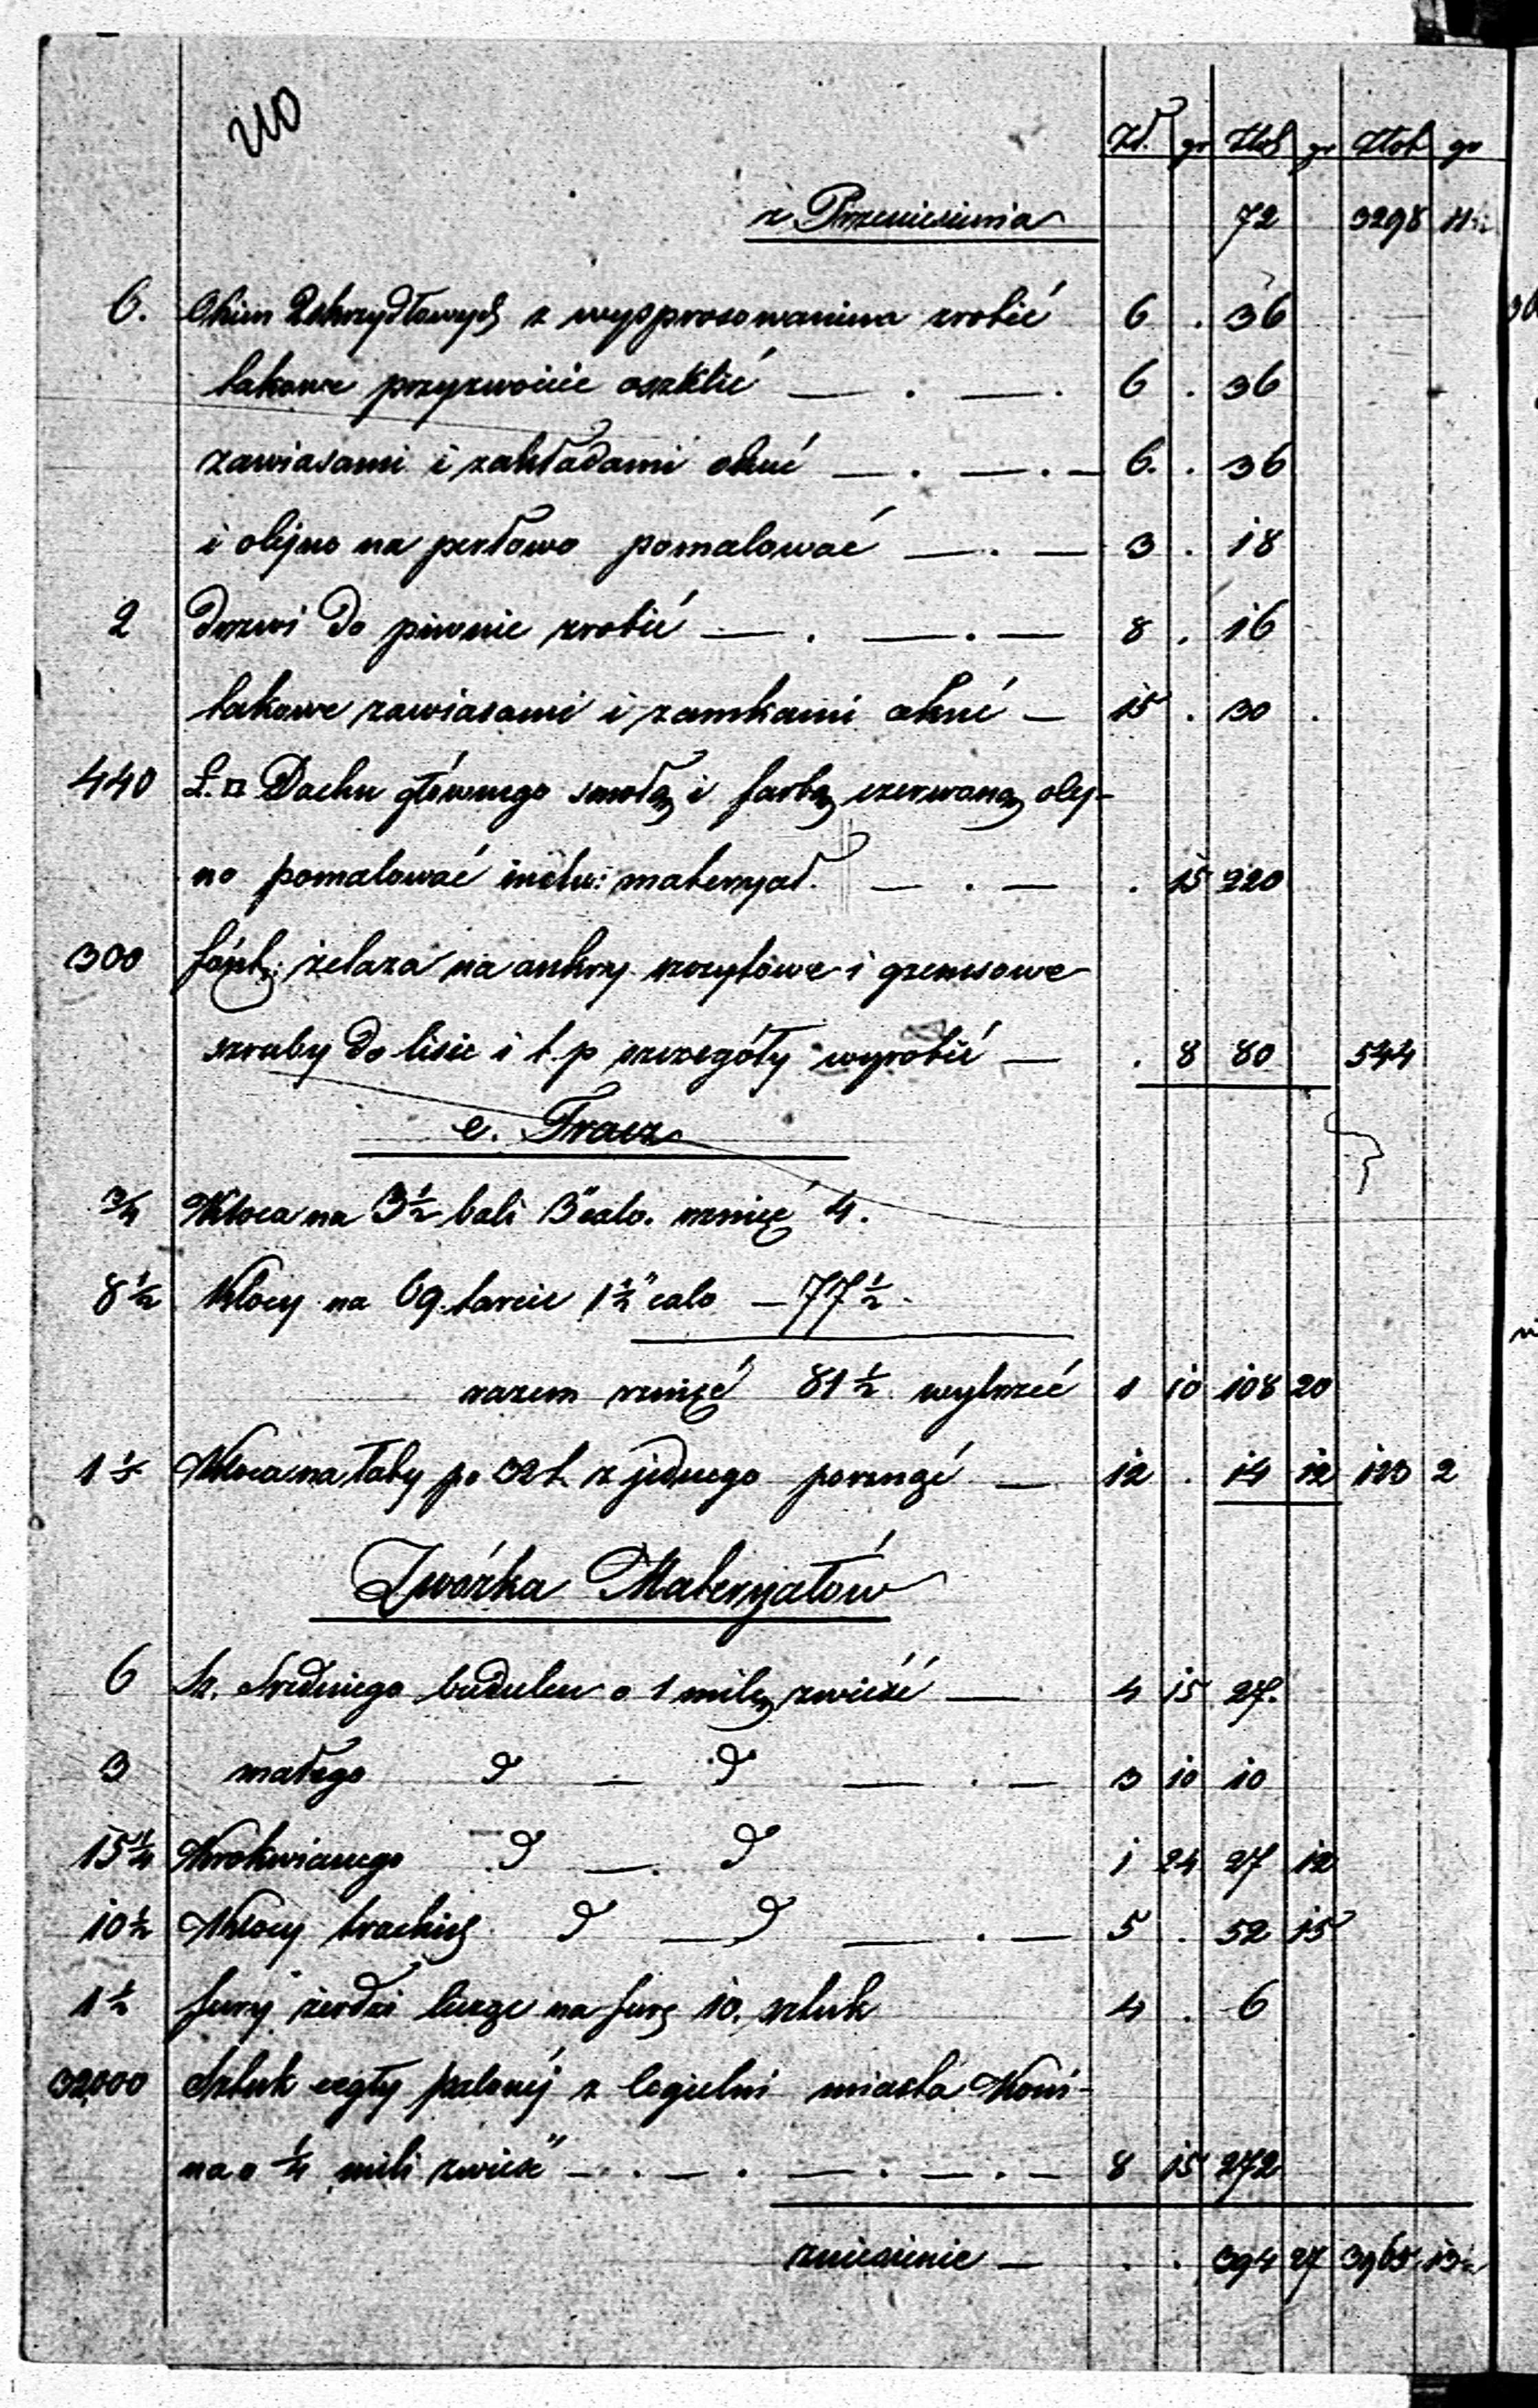 210
Zł. gr Złot gr Złot gr
z Przeniesienia 72 3298 11½
6. Okien 2skrzydłowych z wysprosowaniem zrobić 6 . 36
takowe przyzwoicie oszklić — . — . 6 . 36
zawiasami i zakładami okuć — . — . — 6. . 36
i olejno na perłowo pomalować — . — 3 . 18
2 drzwi do piwnic zrobić — . — . — 8 . 16
takowe zawiasami i zamkami okuć — 15 . 30 .
440 Ł.□ Dachu głównego smołą i farbą czerwoną olej-
no pomalować inclu: materyał. — . — . 15 220
300 funt: żelaza na ankry szczytowe i gzemsowe
szruby do lisic i t.p szczegóły wyrobić — . 8 80 544
e. Tracz
¾ Kloca na 3½ bali 3" calo. rznięć 4.
8½ Klocy na 69 tarcic 1½" calo — 77½
razem rznięć 81½ wyrznąć 1 10 108 20
1⅕ Kloca na łaty po 32 Ł z jednego porznąć — 12 . 14 12 123 2
Zwózka Materyałów
6 Sz. średniego budulcu o 1 milę zwieźć — 4 15 27.
3 małego d — d — . — 3 10 10
15¼ Krokwianego d — . d 1 24 27 12
10½ Klocy trackich d — d — . — 5 . 52 15
1½ fury żerdzi licząc na furę 10. sztuk 4 . 6
32,000 Sztuk cegły palonéj z Cegielni miasta Koni-
na o ¼ mili zwieźć — . — . — . — . — 8 15 272
zniesienie — . . 394 27 3965 13½